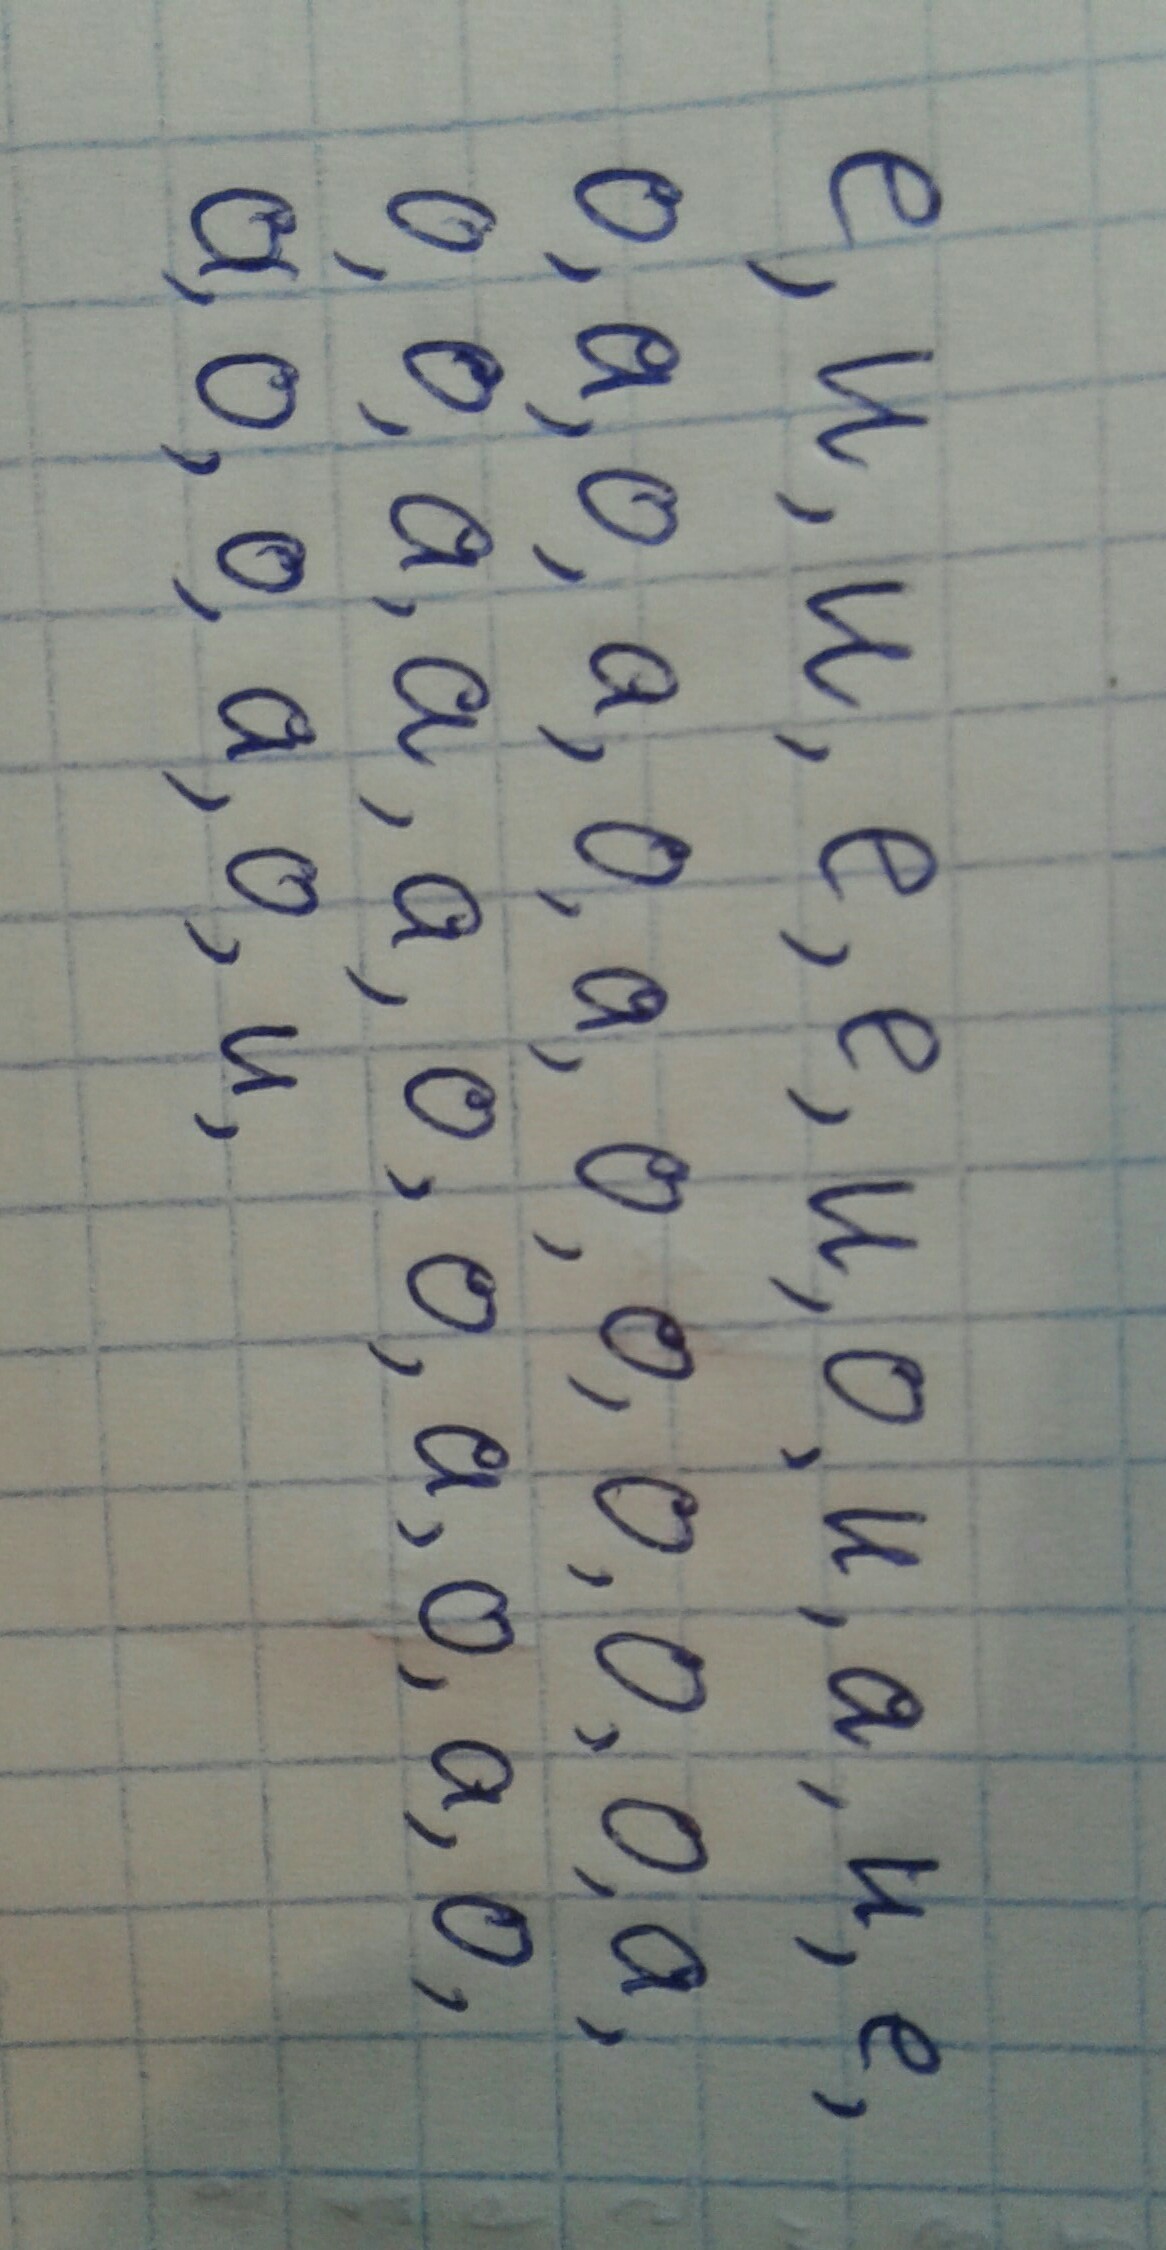 е, и, и, е, е, и, о, и, а, и, е,
о, а, о, а, о, а, о, о, о, о, о, а,
о, о, а, а, а, о, о, а, о, а, о,
а, о, о, а, о, и,